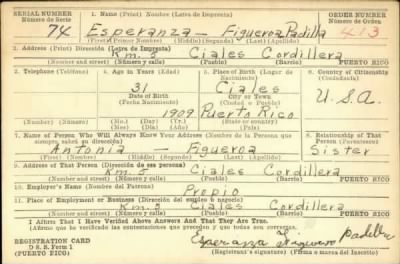 SERIAL NUMBER 1. Name (Print) Nombre (Letra de Imprenta) ORDER NUMBER
Número de Serie Número de Orden
74 Esperanza — Figueroa Padilla 413
(First) Primer Nombre (Middle) (Segundo) (Last) (Apellido)
2. Address (Print) Dirección (Letra de Imprenta)
Km. 5 Ciales Cordillera
(Number and street) (Número y calle) (Town) (Pueblo) (Barrio) PUERTO RICO
3. Telephone (Teléfono) 4. Age in Years (Edad) 5. Place of Birth (Lugar de Nacimiento) 6. Country of Citizenship (Ciudadanía)
31 Ciales
Date of Birth City or Town
(Fecha Nacimiento) (Ciudad o Pueblo) U.S.A.
1909 Puerto Rico
(Number) (Número) (Mo.) (Day) (Yr.) (State or country)
(Mes) (Día) (Año) (Estado o país)
7. Name of Person Who Will Always Know Your Address (Nombre de la Persona que siempre sabrá su dirección) 8. Relationship of That Person (Parentesco)
Antonia — Figueroa Sister
(First) (Nombre) (Middle) (Segundo) (Last) (Apellido)
9. Address of That Person (Dirección de esa persona)
Km. 5 Ciales Cordillera
(Number and street) (Número y calle) (Town) (Pueblo) (Barrio) PUERTO RICO
10. Employer's Name (Nombre del Patrono)
Propio
11. Place of Employment or Business (Dirección del empleo o negocio)
Km. 5 Ciales Cordillera
(Number and street) (Número y calle) (Town) (Pueblo) (Barrio) PUERTO RICO
I Affirm That I Have Verified Above Answers and That They Are True.
(Afirmo que he verificado las contestaciones que preceden y que son ciertas)
REGISTRATION CARD
D. S. S. Form 1
(PUERTO RICO)
Esperanza Figueroa Padilla
(Registrant's signature) (Firma o marca del Inscrito)